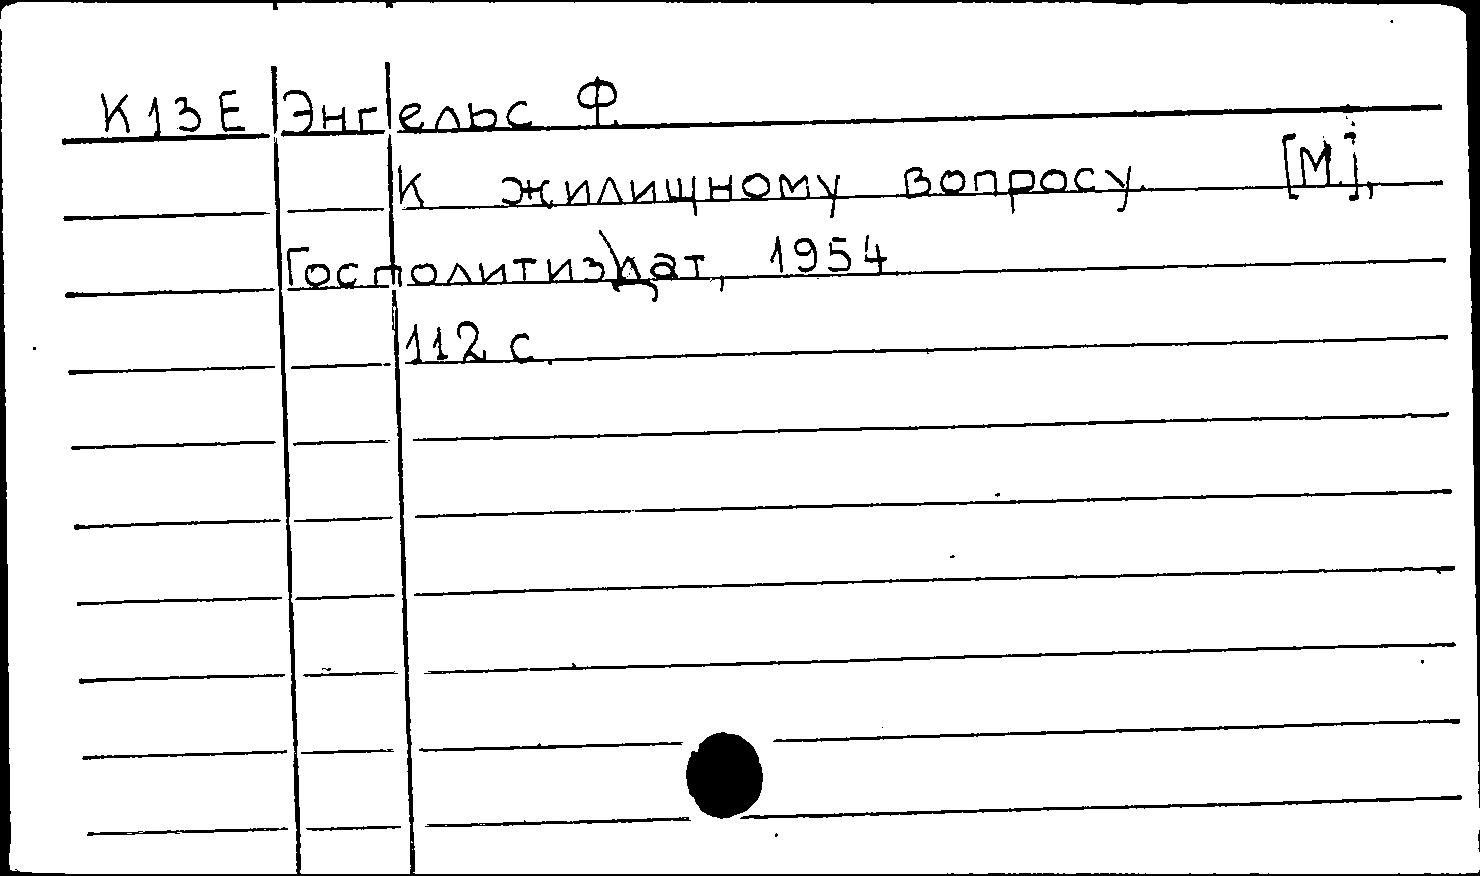 К13Е Энгельс Ф.
К жилищному вопросу. [М.],
Госполитиздат, 1954
112 с.